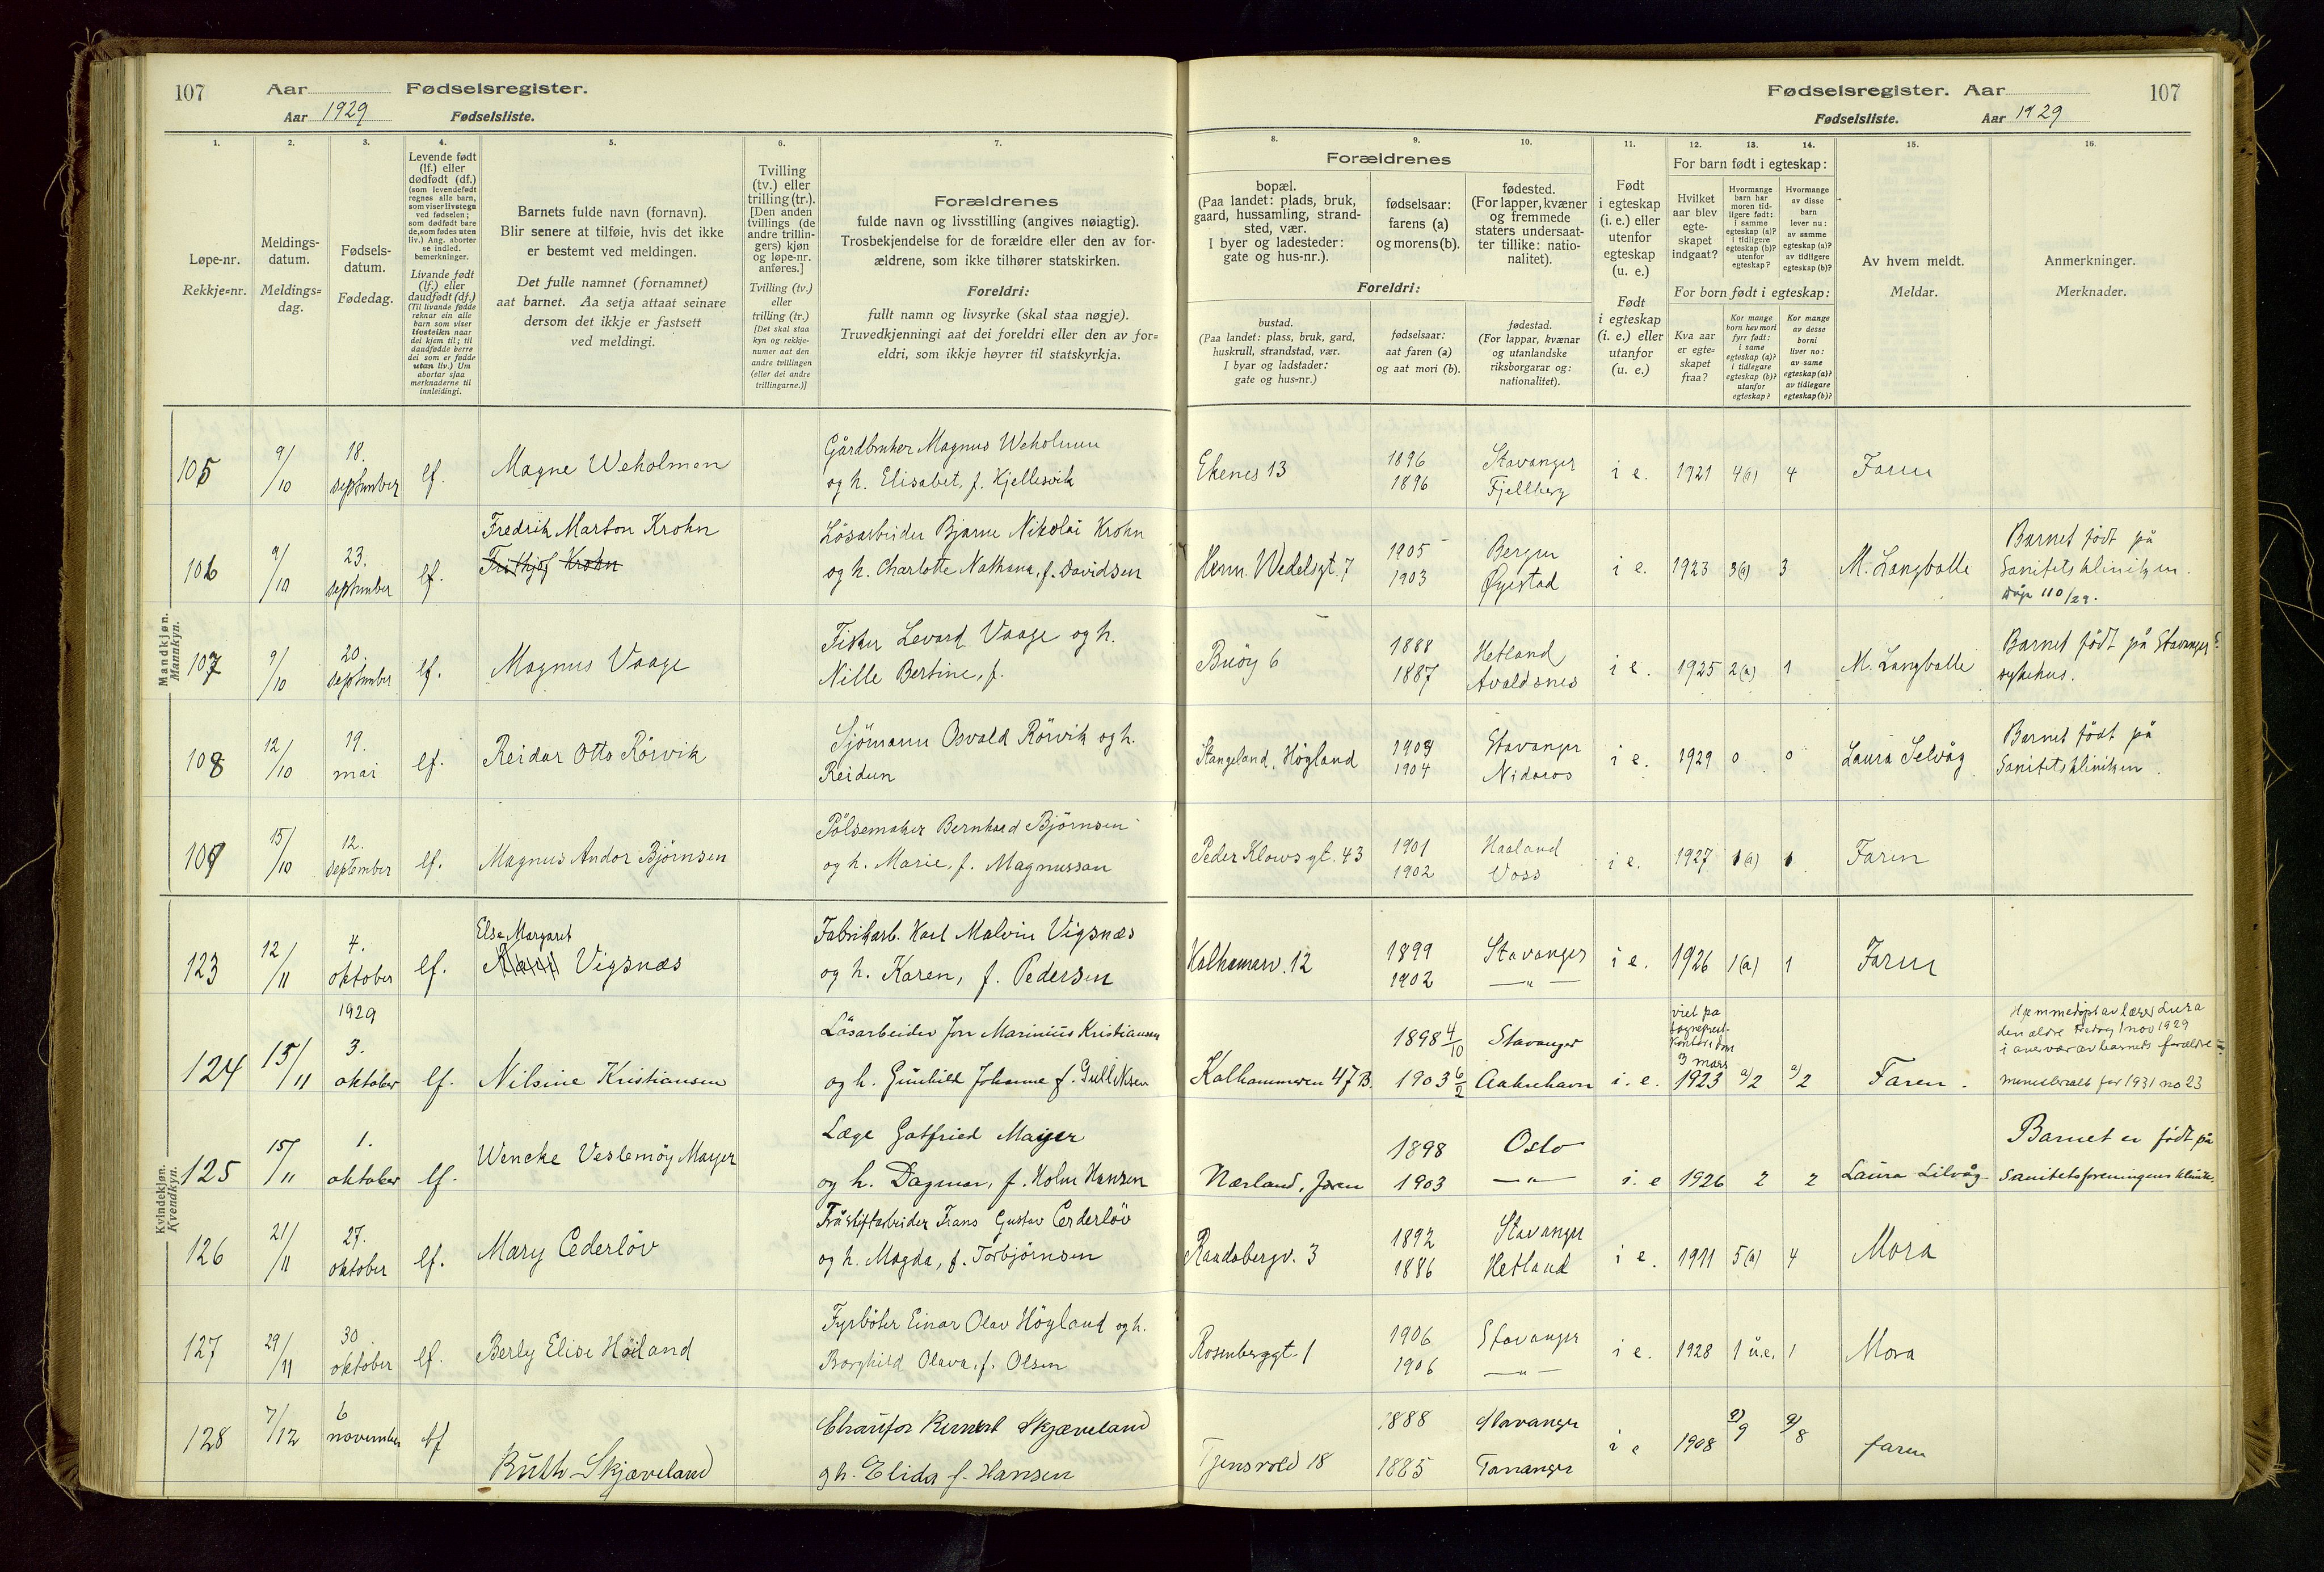 107 Aar Fødselsregister.
Aar 1929 Fødselsliste.
Fødselsregister. Aar 107
Fødselsliste. Aar 1929
1. 2. 3. 4. 5. 6. 7. 8. 9. 10. 11. 12. 13. 14. 15. 16.
Løpe-nr.
Rekkje=nr.
Meldings-
datum.
Meldings=
dag.
Fødsels-
datum.
Fødedag.
Levende født
(lf.) eller
dødfødt (df.)
(som levendefødt
regnes alle barn,
som viser livstegn
ved fødselen;
som dødfødt bare
de, som fødes uten
liv.) Ang. aborter
se indled.
bemerkninger.
Livande født
(lf.) eller
daudfødt (df.)
(Til livande fødde
reknar ein alle
barn som viser
livsteikn naar
dei kjem til; til
daudfødde berre
dei som er fødde
utan liv.) Um
abortar sjaa
merknaderne til
innleidingi.
Barnets fulde navn (fornavn).
Blir senere at tilføie, hvis det ikke
er bestemt ved meldingen.
Det fulle namnet (fornamnet)
aat barnet. Aa setja attaat seinare
dersom det ikkje er fastsett
ved meldingi.
Tvilling
(tv.) eller
trilling (tr.).
[Den anden
tvillings (de
andre trillin-
gers) kjøn
og løpe-nr.
anføres.]
Tvilling (tv.)
eller
trilling (tr.)
[Det skal staa
kyn og rekkje-
numer aat den
andre tvillingen
(eller dei andre
trillingarne.)]
Forældrenes
fulde navn og livsstilling (angives nøiagtig).
Trosbekjendelse for de forældre eller den av for-
ældrene, som ikke tilhører statskirken.
Foreldri:
fullt namn og livsyrke (skal staa nøgje).
Truvedkjenningi aat dei foreldri eller den av for=
eldri, som ikkje høyrer til statskyrkja.
Forældrenes
bopæl.
(Paa landet: plads, bruk,
gaard, hussamling, strand-
sted, vær.
I byer og ladesteder:
gate og hus-nr.).
fødselsaar:
farens (a)
og morens (b).
fødested.
(For lapper, kvæner
og fremmede
staters undersaat-
ter tillike: natio-
nalitet).
Foreldri:
bustad.
(Paa landet: plass, bruk, gard,
huskrull, strandstad, vær.
I byar og ladstader:
gate og hus=nr.)
fødselsaar:
aat faren (a)
og aat mori (b).
fødestad.
(For lappar, kvænar
og utanlandske
riksborgarar og:
nationalitet).
Født
i egteskap
(i. e.) eller
utenfor
egteskap
(u. e.)
Født
i egteskap
(i. e.) eller
utanfor
(u. e.)
For barn født i egteskap:
Hvilket
aar blev
egte-
skapet
indgaat?
Hvormange
barn har
moren tid-
ligere født:
i samme
egteskap (a)?
i tidligere
egteskap (b)?
utenfor
egteskap?
Hvormange
av disse
barn
lever nu:
av samme
egteskap (a)?
av tidligere
egteskap (b)?
For born født i egteskap:
Kva aar
er egte=
skapet
fraa?
Kor mange
born hev mori
fyrr født:
i same
egteskap (a)?
i tidlegare
egteskap (b)?
utanfor
egteskap?
Kor mange
av desse
borni
liver no:
av same
egteskap (a)?
av tidlegare
egteskap (b)?
Av hvem meldt.
Meldar.
Anmerkninger.
Merknader.
Mandkjøn.
Mannkyn.
105 9/10 18. september lf. Magne Weholmen
Gårdbruker Magnus Weholmen
og h. Elisabet, f. Kjellesvik
Ekenes 13 1896 1896 Stavanger Fjellberg i e. 1921 4(a) 4 Faren
106 9/10 23. september lf. Fredrik Marton Krohn
Frithjof Krohn
Lösarbeider Bjarne Nikolai Krohn
og h. Charlotte Nathana, f. Davidsen
Herm. Wedelsgt. 7 1905 1903 Bergen Øyestad i e. 1923 3(a) 3 M. Langballe
Barnet födt på
Sanitetsklinikken.
110/29.
107 9/10 20. september lf. Magnus Vaage
Fisker Levard Vaage og h.
Nille Bertine, f.
Buöy 6 1888 1887 Hetland Avaldsnes i e. 1925 2(a) 1 M. Langballe
Barnet födt på Stavanger
sykehus.
108 12/10 19. mai lf. Reidar Otto Rörvik
Sjömann Osvald Rörvik og h.
Reidun
Stangeland, Högland 1904 1904 Stavanger Nidaros i e. 1929 0 0 Laura Selvåg
Barnet födt på
Sanitetsklinikken.
109 15/10 12. september lf. Magnus Andor Björnsen
Pölsemaker Bernhard Björnsen
og h. Marie, f. Magnussan
Peder Klowsgt. 43 1901 1902 Haaland Voss i e. 1927 1(a) 1 Faren
Kvindekjøn.
Kvendkyn.
123 12/11 4. oktober lf. Else Margaret
Vigsnæs
Fabrikarb. Karl Malvin Vigsnæs
og h. Karen, f. Pedersen
Kalhamarv. 12 1899 1902 Stavanger —"— i e. 1926 1(a) 1 Faren
1929
124 15/11 3. oktober lf. Nilsine Kristiansen
Lösarbeider Jon Marinius Kristiansen
og h. Gunhild Johanne f. Gulliksen
Kalhammeren 47 B. 1898 4/10 1903 6/2 Stavanger Aakrehavn i. e. viet på
sogneprest-
kontoret den
3 mars
1923 a/2 a/2 Faren.
Hjemmedöpt av lærer Lura
den ældre fredag 1 nov 1929
i overvær av barnets forældre
ministerialb for 1931 no 23
125 15/11 1. oktober lf. Wencke Veslemöy Mayer
Læge Gotfried Mayer
og h. Dagmar, f. Holm Hansen
Nærland, Jæren 1898 1903 Oslo —"— i. e 1926 2 2 Laura Lilvåg
Barnet er födt på
Sanitetsforeningens klinikk.
126 21/11 27. oktober lf. Mary Cederlöv
Tråstiftarbeider Frans Gustav Cederlöv
og h. Magda, f. Torbjörnsen
Randabergv. 3 1892 1886 Stavanger Hetland i e. 1911 5(a) 4 Mora
127 29/11 30. oktober lf. Berly Elise Höiland
Fyrböter Einar Olav Högland og h.
Borghild Olava, f. Olsen
Rosenberggt. 1 1906 1906 Stavanger —"— i e. 1928 1 u.e. 1 Mora
128 7/12 6 november lf Ruth Skjæveland
Chauffør Rernert Skjæveland
g h. Elida f. Hansen
Tjensvold 18 1888 1885 Stavanger Tananger i e 1908 a)9 a)8 faren